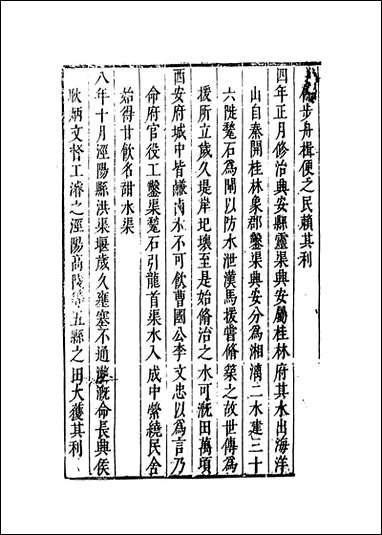 步舟楫便之民賴其利
四年正月修治興安縣靈渠興安屬桂林府其水出海洋
山自秦開桂林象郡鑿渠興安分為湘漓二水建三十
六陡甃石為閘以防水泄漢馬援嘗脩築之故世傳為
援所立歲久堤岸圮壞至是始脩治之水可溉田萬頃
西安府城中皆鹻滷水不可飲曹國公李文忠以為言乃
命府官役工鑿渠甃石引龍首渠水入城中縈繞民舍
始得甘飲名甜水渠
八年十月涇陽縣洪渠堰歲久壅塞不通溉命長興侯
耿炳文督工濬之涇陽高陵等五縣之田大獲其利